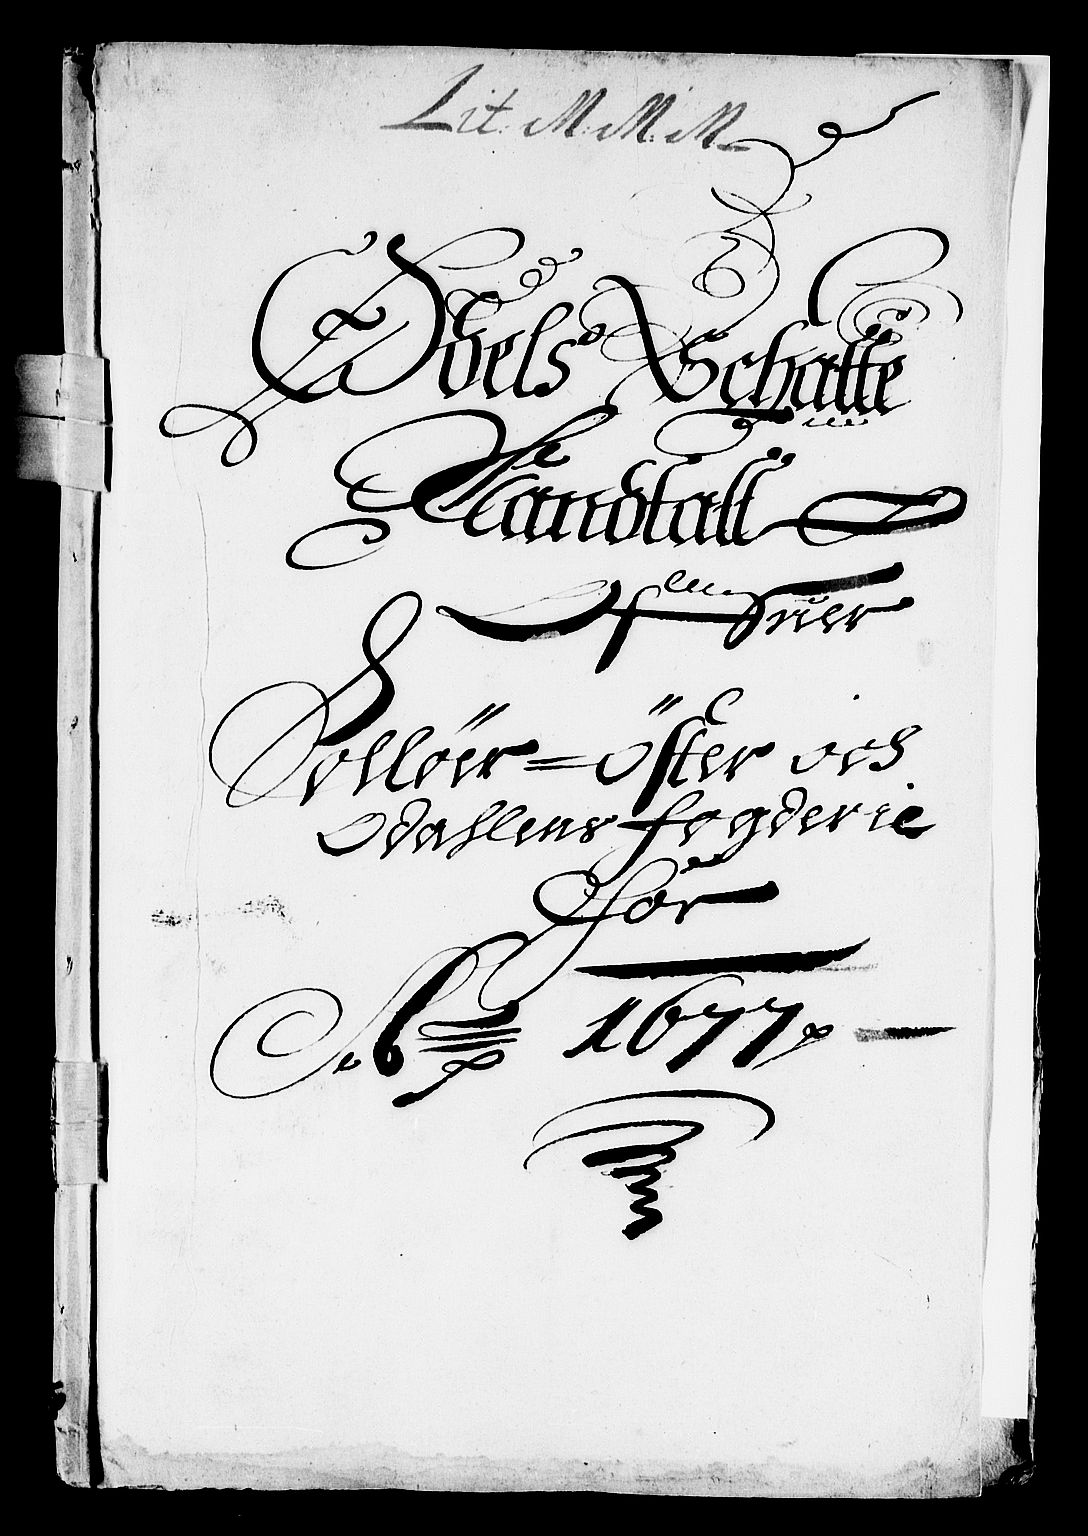 Lit: M: M: M
Odels Schatte
Mandtall
Ofuer
Sollöer = öster och
Odahlens fogderie
for
Ao 1677